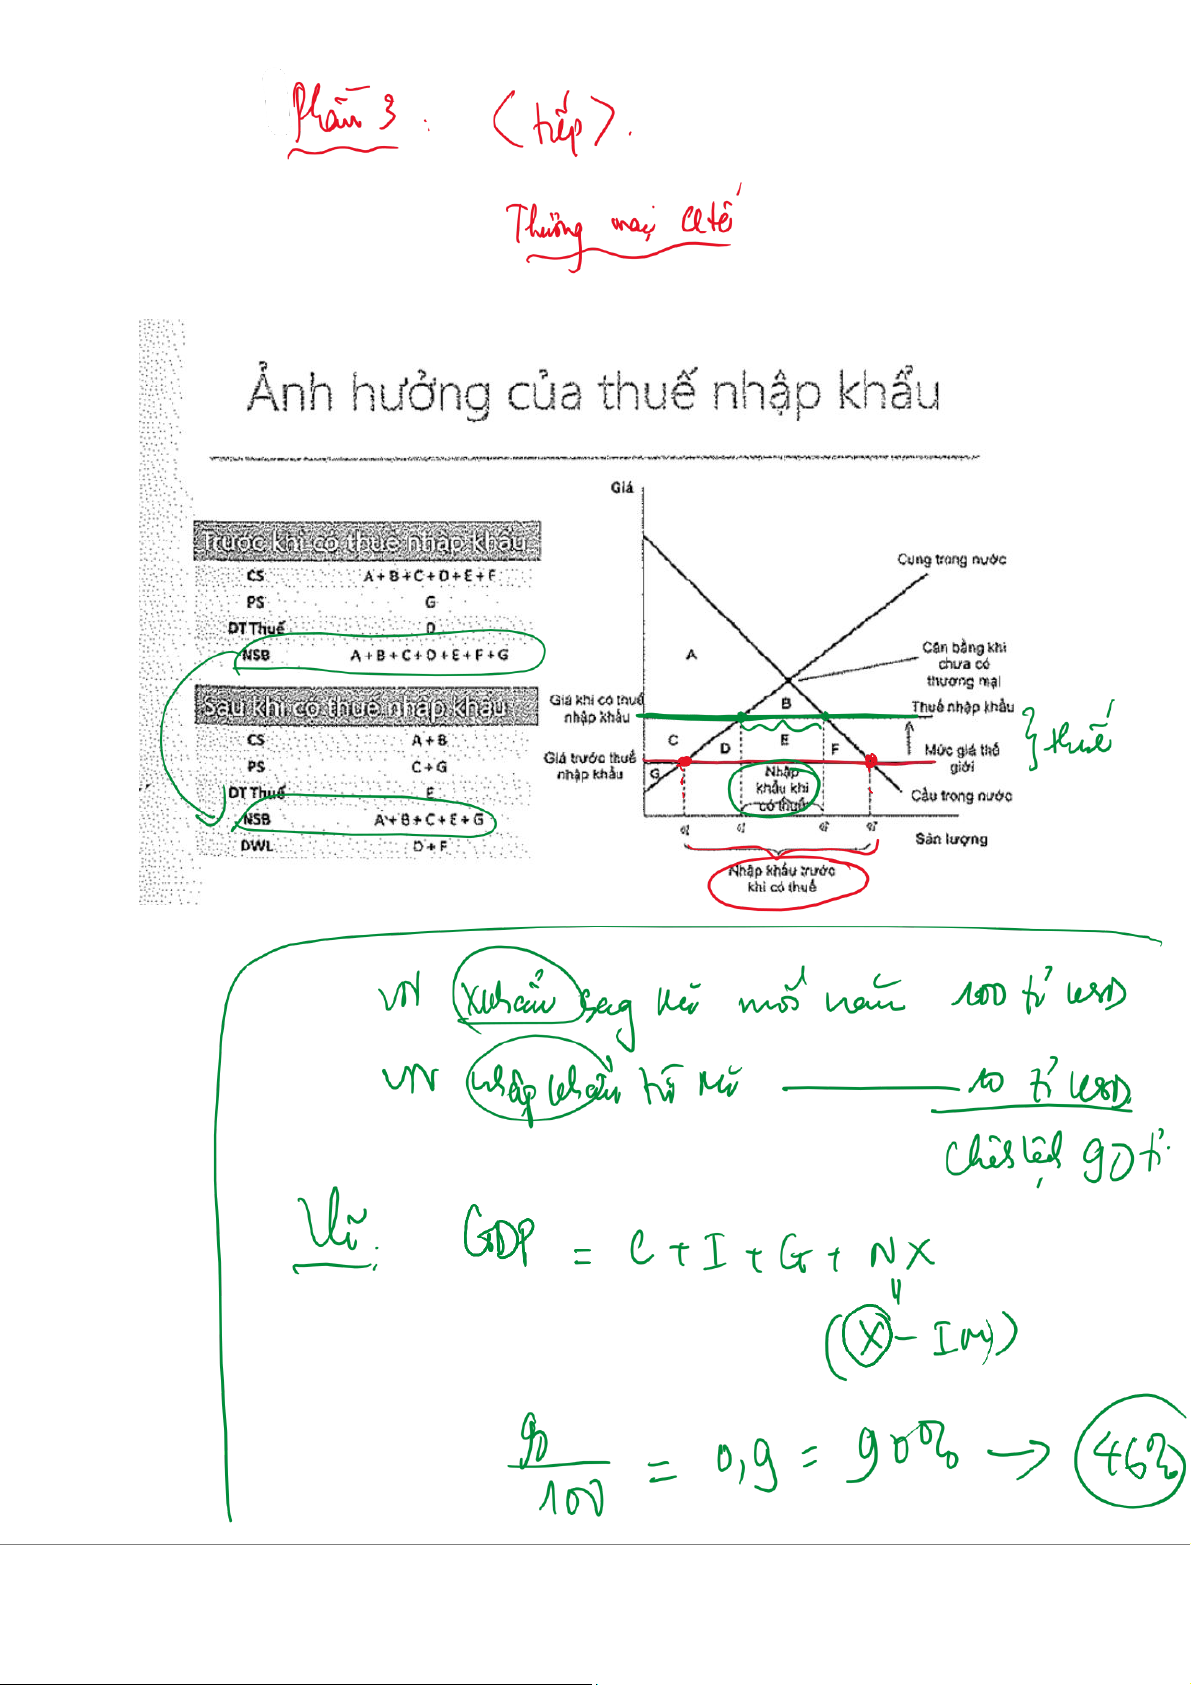 Phần 3 : (tiếp).
Thương mại Qtế
Ảnh hưởng của thuế nhập khẩu
Trước khi có thuế nhập khẩu
CS A+B+C+D+E+F
PS G
DT Thuế 0
NSB A+B+C+D+E+F+G
Sau khi có thuế nhập khẩu
CS A+B
PS C+G
DT Thuế E
NSB A+B+C+E+G
DWL D+F
Giá
Cung trong nước
A
Cân bằng khi
chưa có
thương mại
Giá khi có thuế
nhập khẩu
B
Thuế nhập khẩu
thuế
C
D
E
F
Giá trước thuế
nhập khẩu
Mức giá thế
giới
G
Nhập
khẩu khi
có thuế
Cầu trong nước
Sản lượng
Nhập khẩu trước
khi có thuế
VN xkhẩu sag Mĩ mỗi năm 100 tỉ USD
VN nhập khẩu từ Mĩ 10 tỉ USD
Chênh lệch 90 tỉ
Vĩ: GDP = C + I + G + NX
(X - IM)
90/100 = 0,9 = 90% → 46%